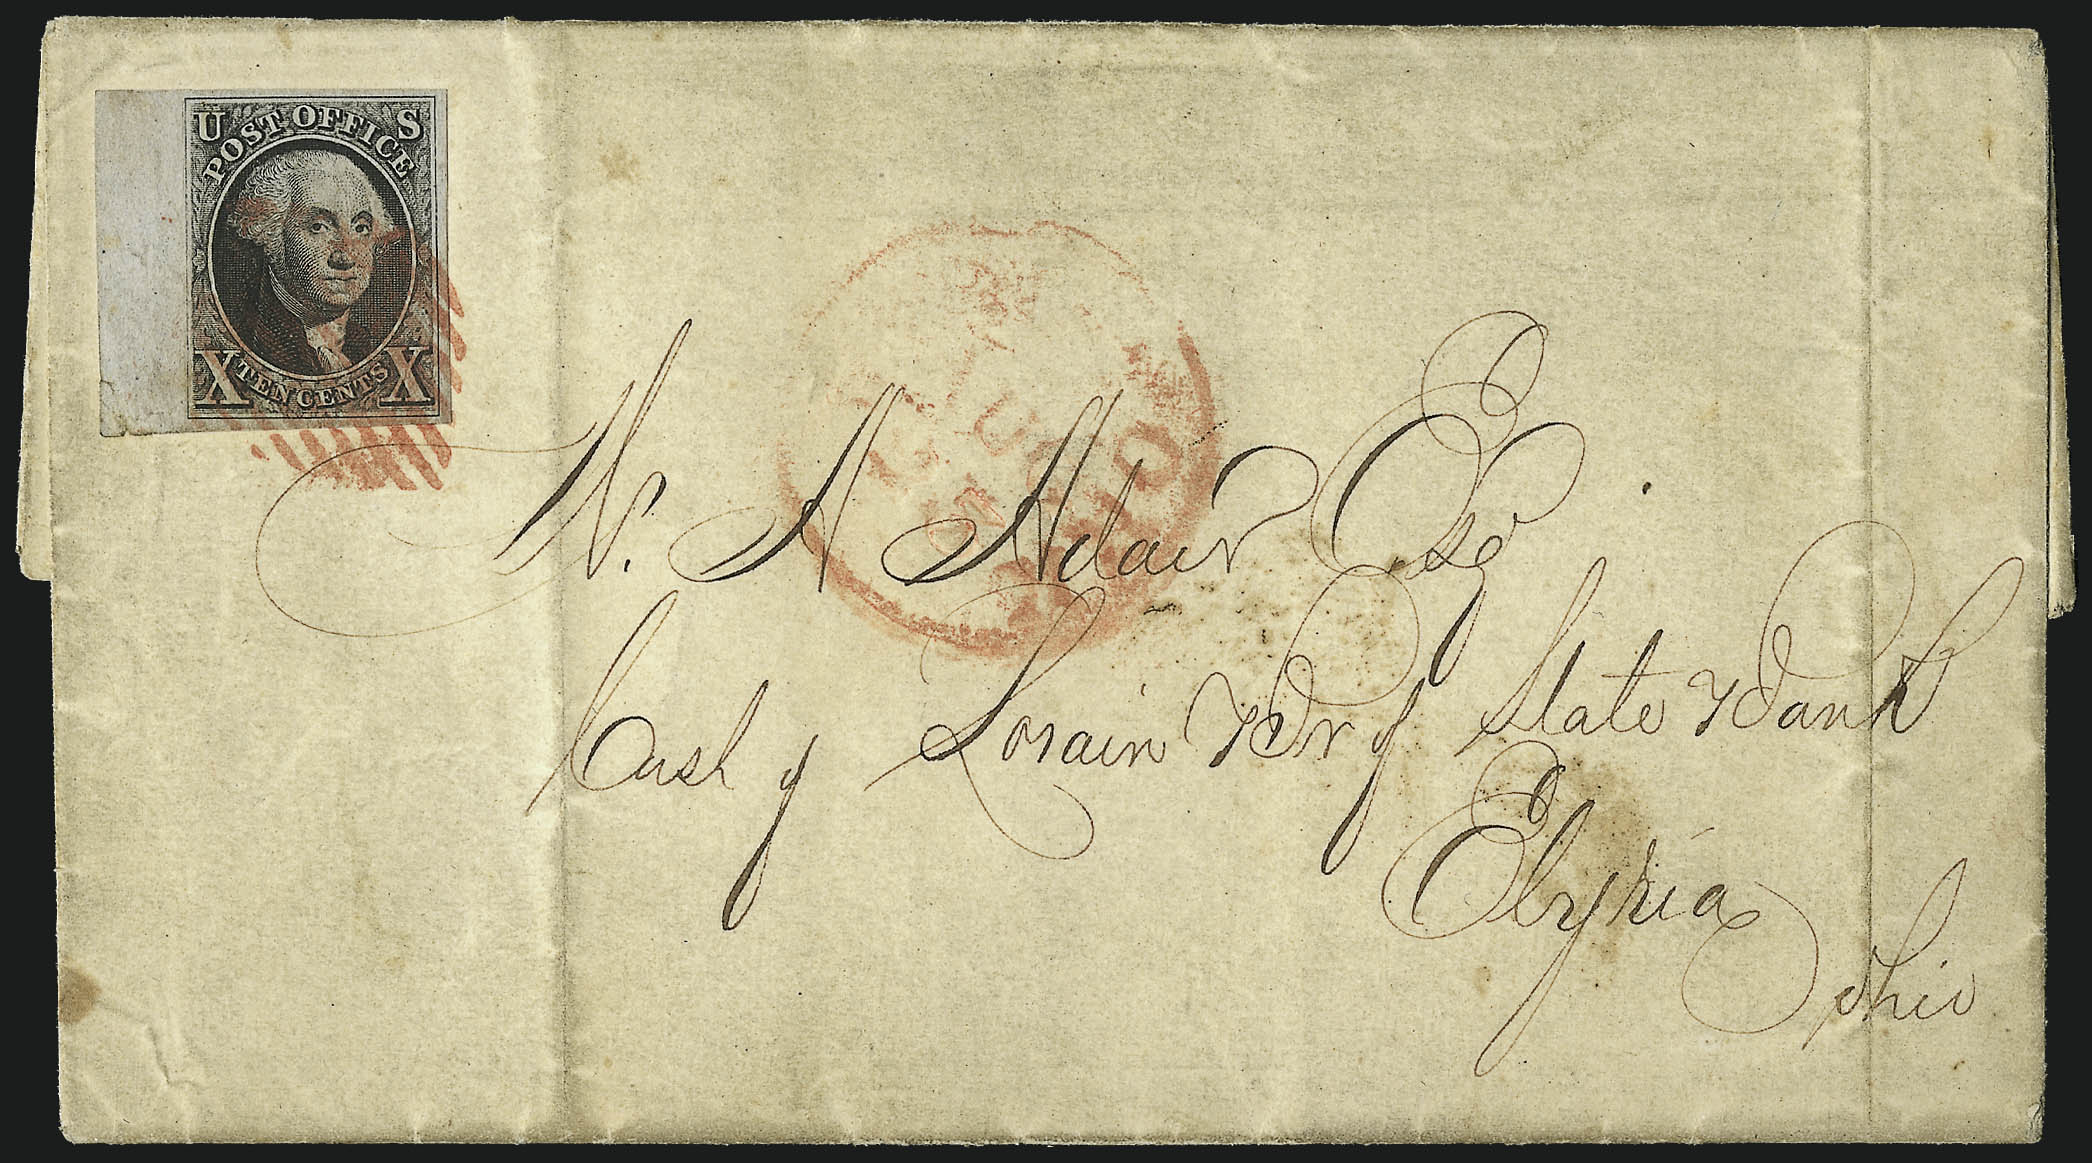 U S
POST OFFICE
X TEN CENTS X
OHIO
W. A Adair Esq
Cash of Lorain Br of State Bank
Elyria
Ohio